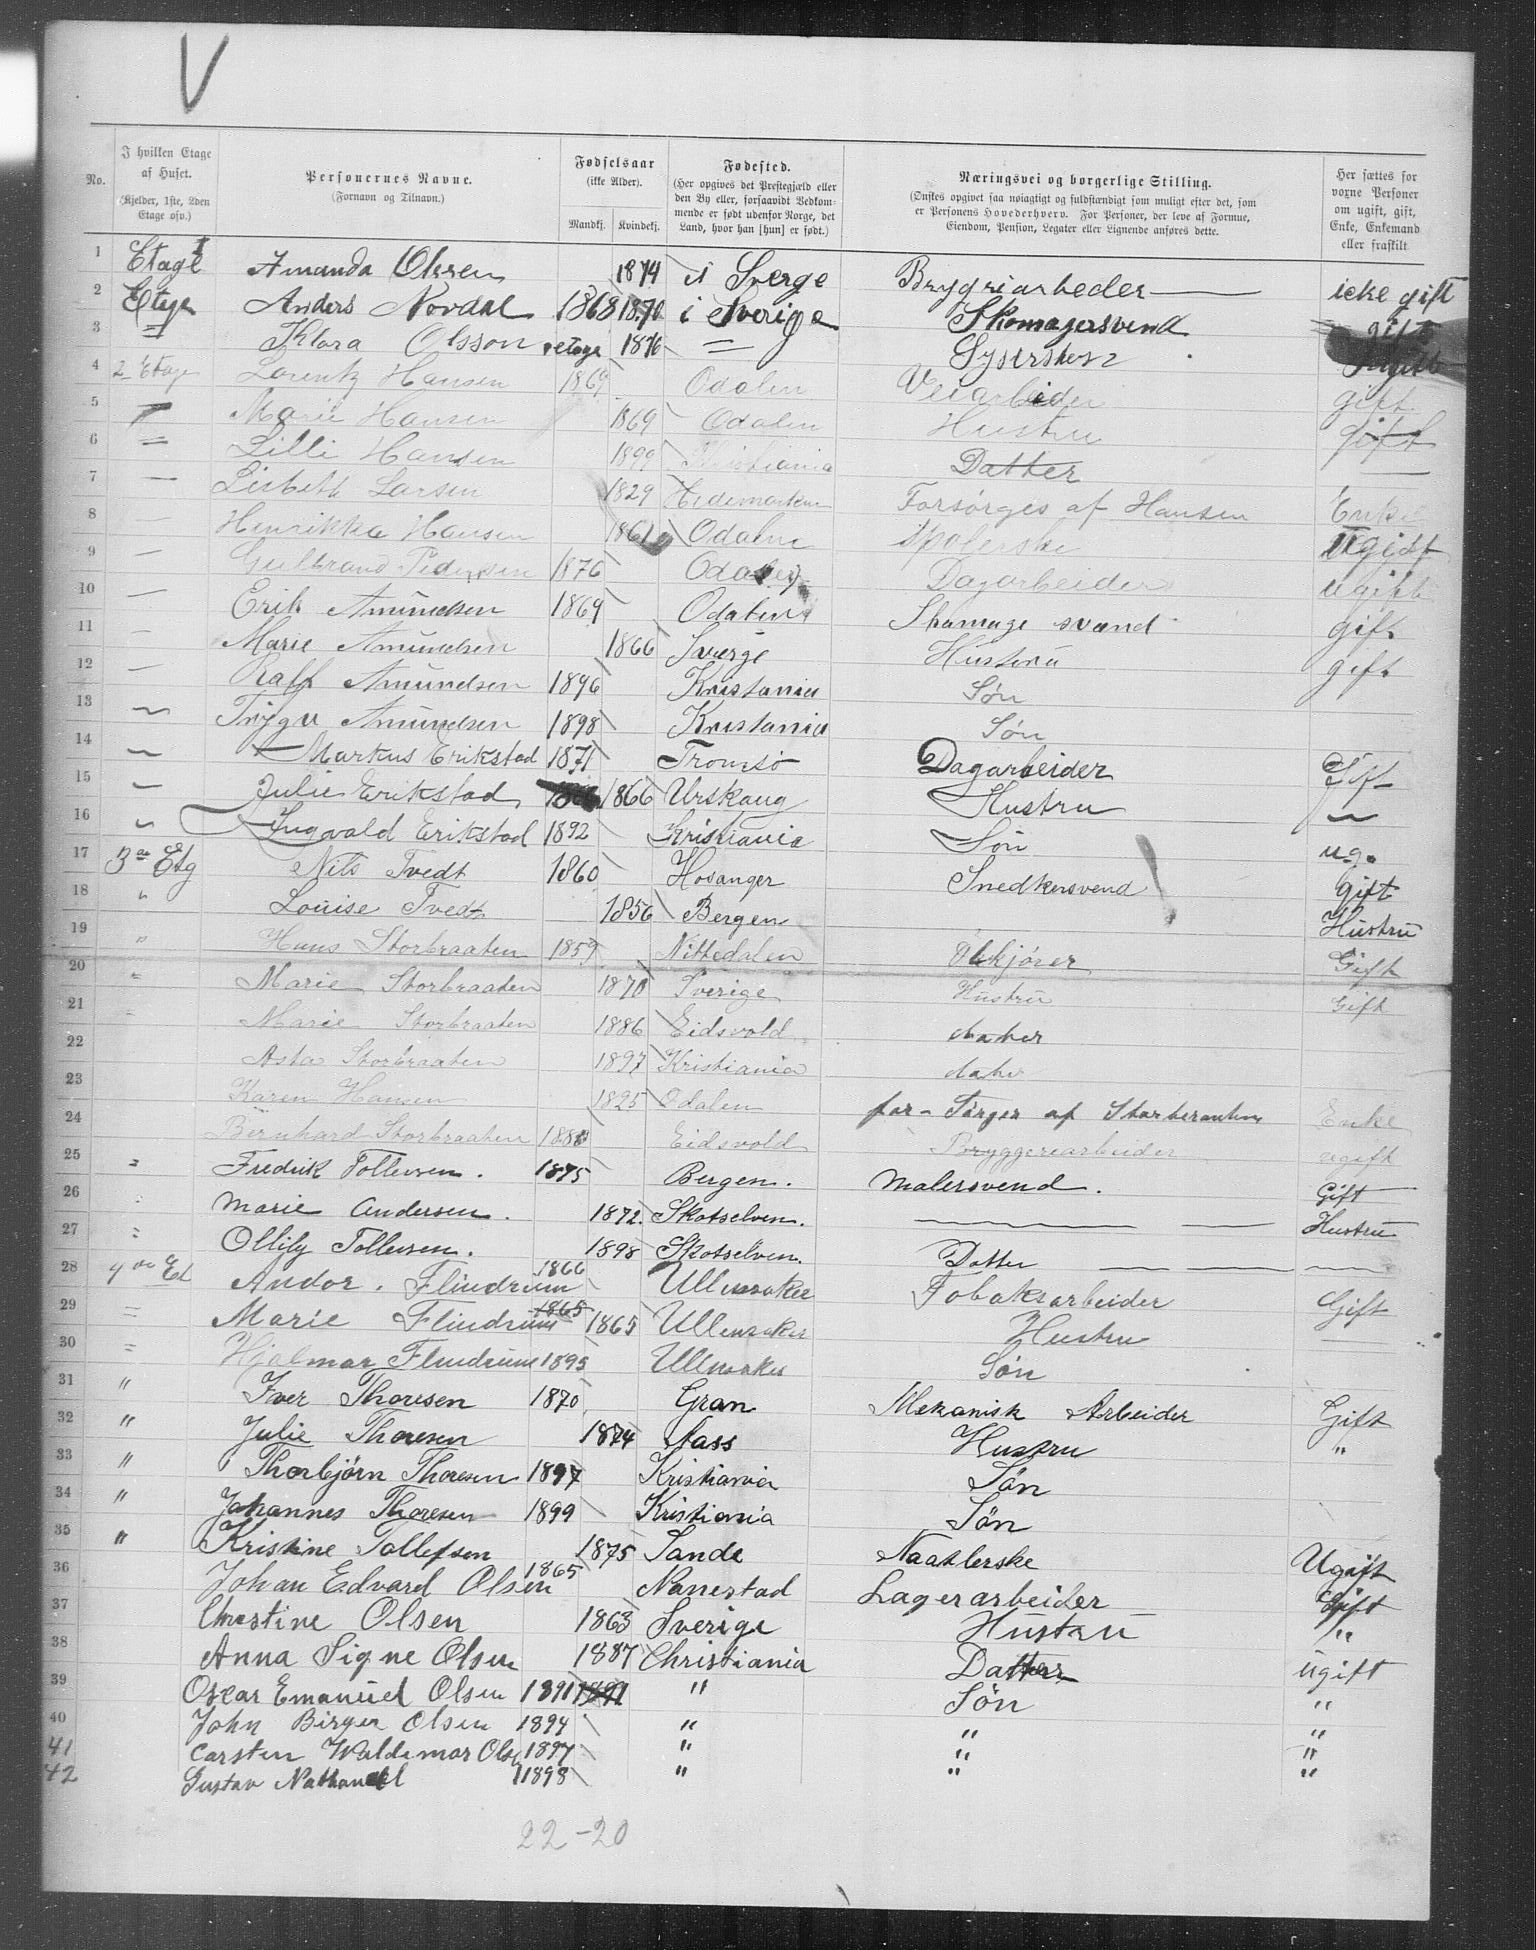 V
No.
I hvilken Etage af Huset. (Kjelder, 1ste, 2den Etage osv.)
Personernes Navne. (Fornavn og Tilnavn.)
Fødselsaar (ikke Alder). Mandkj. Kvindekj.
Fødested. (Her opgives det Prestegjæld eller den By eller, forsaavidt Vedkommende er født udenfor Norge, det Land, hvor han [hun] er født.)
Næringsvei og borgerlige Stilling. (Ønskes opgivet saa nøiagtigt og fuldstændigt som muligt efter det, som er Personens Hovederhverv. For Personer, der leve af Formue, Eiendom, Pension, Legater eller Lignende anføres dette.
Her sættes for voxne Personer om ugift, gift, Enke, Enkemand eller fraskilt
1 Etage I Amanda Olsen 1874 i Sverge Brygriarbeder icke gift
2 Etage Anders Nordal 1868 1870 i Sverige Skomagersvend gift
3 = Klara Olsson etage 1876 = Syerske Ugift
4 2 Etage Lorentz Hansen 1869 Odalen Veiarbeider gift
5 = Marie Hansen 1869 Odalen Hustru gift
6 = Lilli Hansen 1899 Kristiania Datter —
7 — Lisbeth Larsen 1829 Hedemarken Forsørges af Hansen Enke
8 — Henrikka Hansen 1861 Odalen Spolerske Ugift
9 — Gulbrand Pedersen 1876 Odalen Dagarbeider ugift
10 — Erik Amundsen 1869 Odalen Skomage svend gift
11 — Marie Amundsen 1866 Sverge Hustru gift
12 — Ralf Amundsen 1896 Kristania Søn
13 — Trygv Amundsen 1898 Kristania Søn
14 — Markus Erikstad 1871 Tromsö Dagarbeider Gift
15 — Julie Erikstad 1866 Urskaug Hustru —
16 — Ingvald Erikstad 1892 Kristiania Søn ug.
17 3die Etg Nils Tvedt 1860 Hosanger Snedkersvend gift
18 " Louise Tvedt 1856 Bergen Hustru
19 " Hans Storbraaten 1859 Nittedalen Ølkjører Gift
20 " Marie Storbraaten 1870 Sverige Hustru Gift
21 " Marie Storbraaten 1886 Eidsvold dater
22 Asta Storbraaten 1897 Kristiania dater
23 Karen Hansen 1825 Odalen for-Sørges af Storberaaten Enke
24 Bernhard Storbraaten 1880 Eidsvold Bryggeriarbeider ugift
25 " Fredrik Tollevsen. 1875 Bergen. Malersvend. Gift
26 " Marie Andersen. 1872. Skotselven. — — Hustru
27 " Ollily Tollevsen. 1898 Skotselven. Datter — — —
28 4de Et Andor. Flindrum 1866 Ullensaker Tobaksarbeider Gift
29 = Marie Flindrum 1865 1865 Ullensaker Hustru —
30 = Hjalmar Flindrum 1895 Ullensaker Søn
31 " Iver Thoresen 1870 Gran Mekanisk Arbeider Gift
32 " Julie Thoresen 1874 Aass Hustru "
33 " Thorbjørn Thoresen 1897 Kristiania Søn
34 " Johannes Thoresen 1899 Kristiania Søn
35 " Kristine Tollefsen 1875 Sande Naatlerske Ugift
36 Johan Edvard Olsen 1865 Nanestad Lagerarbeider Gift
37 Chrestine Olsen 1863 Sverige Hustru "
38 Anna Signe Olsen 1887 Christiania Datter ugift
39 Oscar Emanuel Olsen 1891 1891 " Søn "
40 John Birger Olsen 1894 " " "
41 Carsten Waldemar Olsen 1897 " " "
42 Gustav Nathanael 1898 " " "
22-20